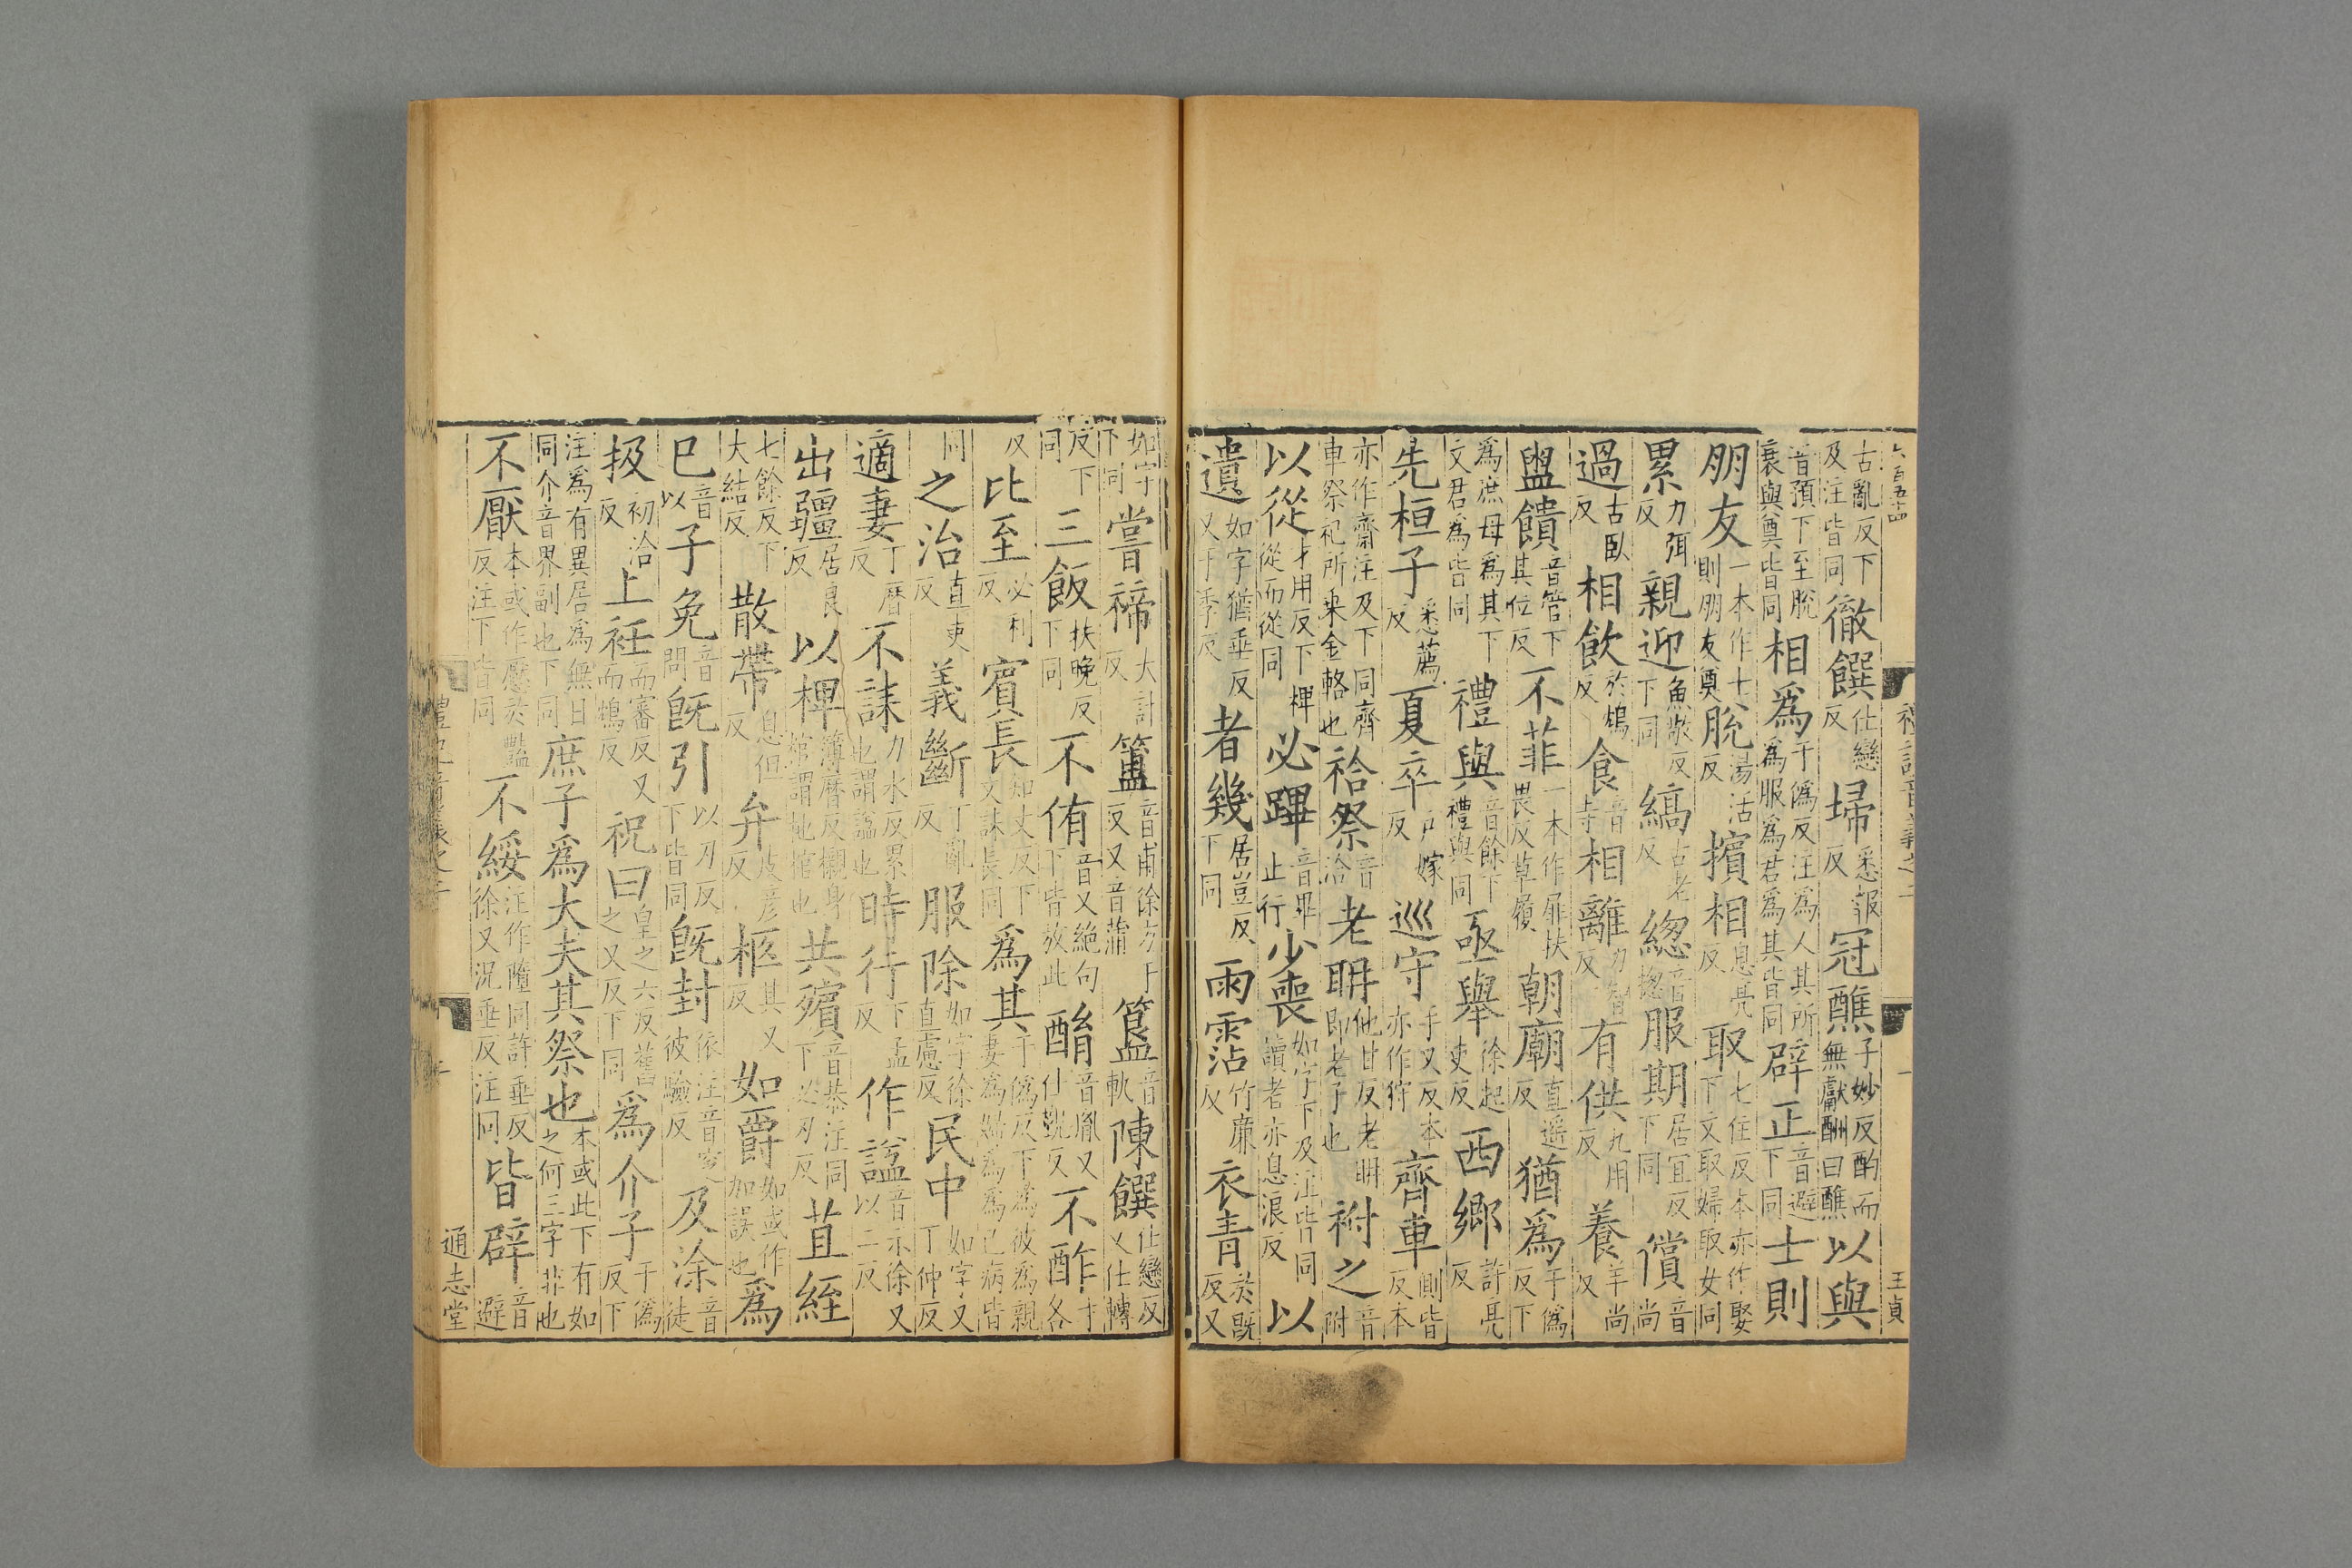 六百五十四
王貞
古亂反下及注皆同徹饌仕戀反埽悉報反冠醮子妙反酌而無獻酬曰醮以與
音預下至脫衰與奠皆同相爲于僞反注爲人其所爲服爲君爲其皆同辟正音避下同士則
朋友一本作士則朋友奠脫湯活反擯相息亮反取七住反本亦作娶下文取婦取女同
累力弭反親迎魚敬反下同縞古老反緫音揔服期居宜反下同償音尚
過古臥反相飲於鴆反食音寺相離力智反有供九用反養羊尚反
盥饋音管下其位反不菲一本作屝扶畏反草屨朝廟直遥反猶爲于僞反下
爲庶母爲其下文君爲皆同禮與音餘下禮與同亟舉徐起吏反西鄉許亮反
先桓子悉薦反夏卒戶嫁反巡守手又反本亦作狩齊車側皆反本
亦作齋注及下同齊車祭祀所乘金輅也祫祭音洽老聃他甘反老聃即老子也祔之音附
以從才用反下椑從而從同必蹕音畢止行少喪如字下及注皆同讀者亦息浪反以
遺如字猶垂反又于季反者幾居豈反下同雨霑竹廉反衣青於既反又
如字下同嘗禘大計反簠音甫徐方于反又音蒲簋音軌陳饌仕戀反又仕轉
反下同三飯扶晚反下同不侑音又絶句下皆放此酳音胤又仕覲反不酢才各
反比至必利反賓長知丈反下文誄長同爲其于僞反下爲彼爲親妻爲婦爲爲己病皆
同之治直吏反義斷丁亂反服除如字徐直慮反民中如字又丁仲反
適妻丁曆反不誄力水反累也謂謚也時行下孟反作謚音示徐又以二反
出疆居良反以椑薄曆反櫬身棺謂杝棺也共殯音恭注同下必刃反苴絰
七餘反下大結反散帶息但反弁皮彦反柩其又反如爵如或作加誤也爲
巳音以子免音問旣引以刃反下皆同旣封依注音窆彼驗反及涂音徒
扱初洽反上衽而審反又而鴆反祝曰皇之六反舊之又反下同爲介子于僞反下
注爲有異居爲無曰同介音界副也下同庶子爲大夫其祭也本或此下有如之何三字非也
不厭本或作懕於豔反注下皆同不綏注作隋同許垂反徐又況垂反注同皆辟音避
通志堂